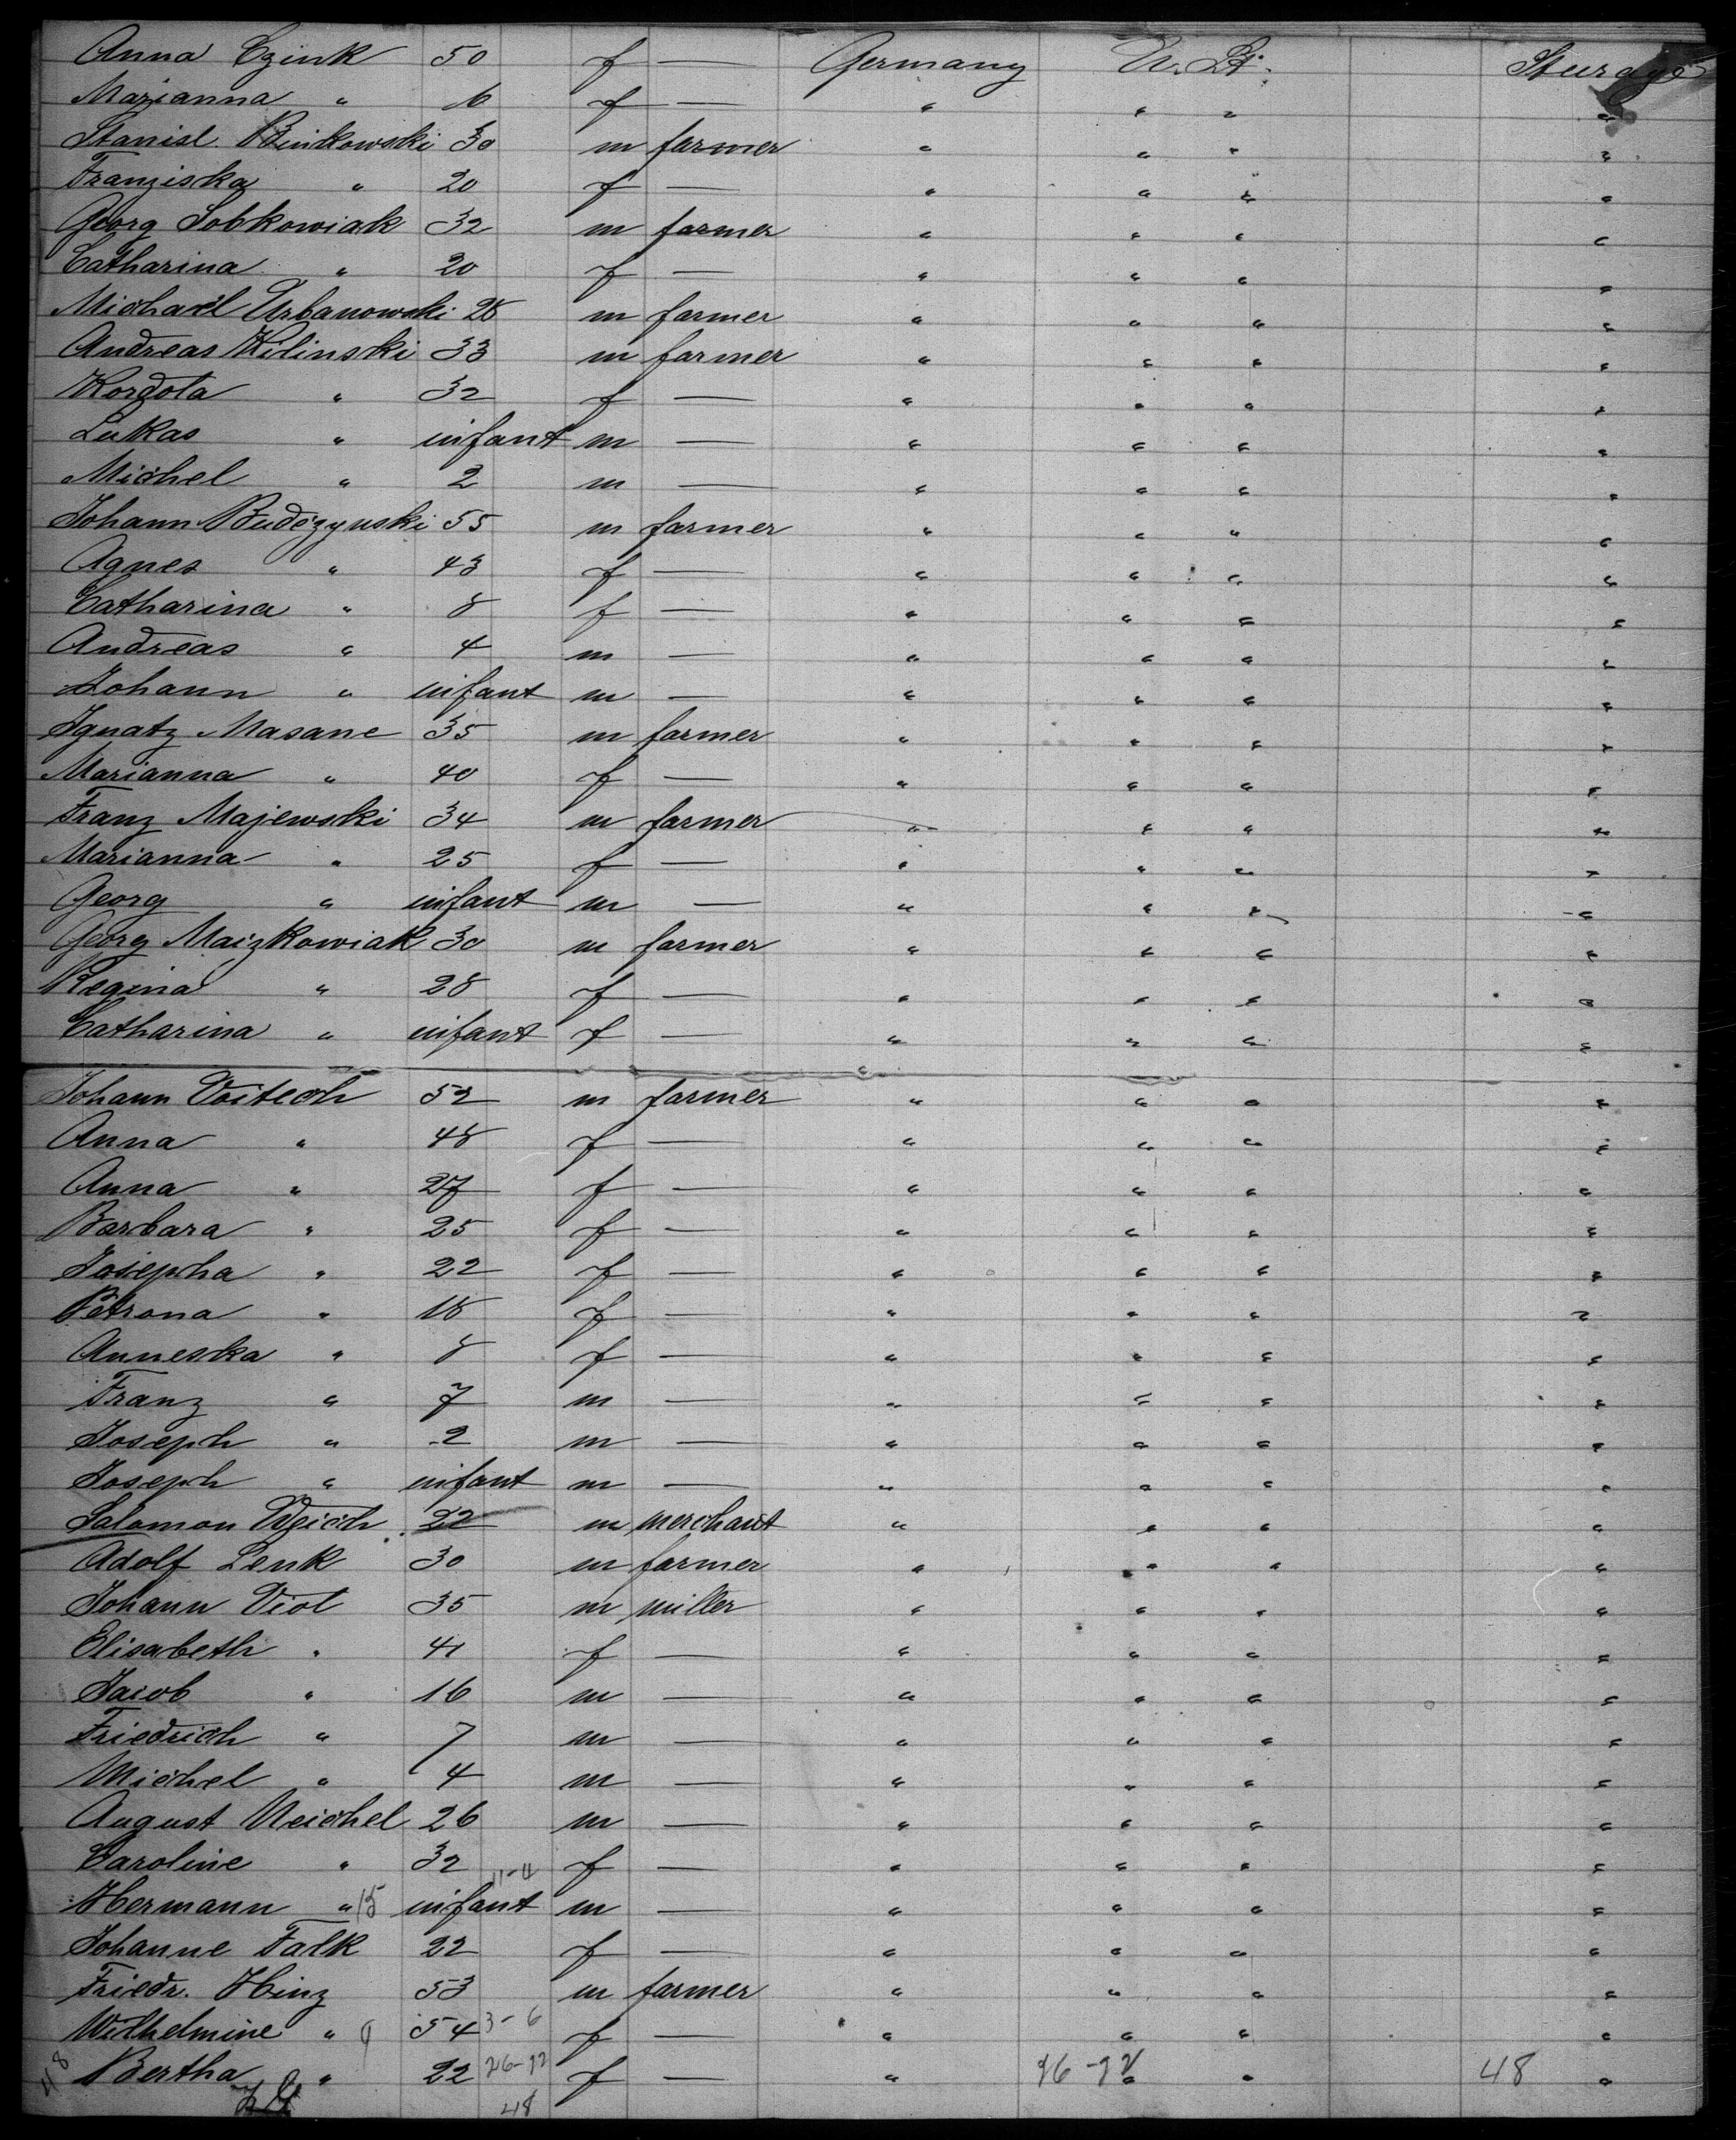 Anna Czink 50 f — Germany U. St. Steerage
Marianna " 6 f — " " " "
Stanisl. Binkowski 30 m farmer " " " "
Franziska " 20 f — " " " "
Georg Sobkowiak 32 m farmer " " " "
Catharina " 20 f — " " " "
Michael Urbanowski 28 m farmer " " " "
Andreas Kilinski 33 m farmer " " " "
Kordota " 32 f — " " " "
Lukas " infant m — " " " "
Michel " 2 m — " " " "
Johann Budczynski 55 m farmer " " " "
Agnes " 43 f — " " " "
Catharina " 8 f — " " " "
Andreas " 4 m — " " " "
Johann " infant m — " " " "
Ignatz Masane 35 m farmer " " " "
Marianna " 40 f — " " " "
Franz Majewski 34 m farmer " " " "
Marianna " 25 f — " " " "
Georg " infant m — " " " "
Georg Maizkowiak 30 m farmer " " " "
Regina " 28 f — " " " "
Catharina " infant f — " " " "
Johann Voitech 52 m farmer " " " "
Anna " 48 f — " " " "
Anna " 27 f — " " " "
Barbara " 25 f — " " " "
Josepha " 22 f — " " " "
Petrona " 18 f — " " " "
Anneska " 8 f — " " " "
Franz " 7 m — " " " "
Joseph " 2 m — " " " "
Joseph " infant m — " " " "
Salomon 22 m merchant " " " "
Adolf Lenk 30 m farmer " " " "
Johann Viol 35 m miller " " " "
Elisabeth " 41 f — " " " "
Jacob " 16 m — " " " "
Friedrich " 7 m — " " " "
Michel " 4 m — " " " "
August Neichel 26 m — " " " "
Caroline " 32 f — " " " "
Hermann " 15 infant 11-4 m — " " " "
Johanne Falk 22 f — " " " "
Friedr. Hinz 53 m farmer " " " "
Wilhelmine " 9 54 3-6 f — " " " "
48 Bertha " 22 26-22 f — " " " 48 "
48